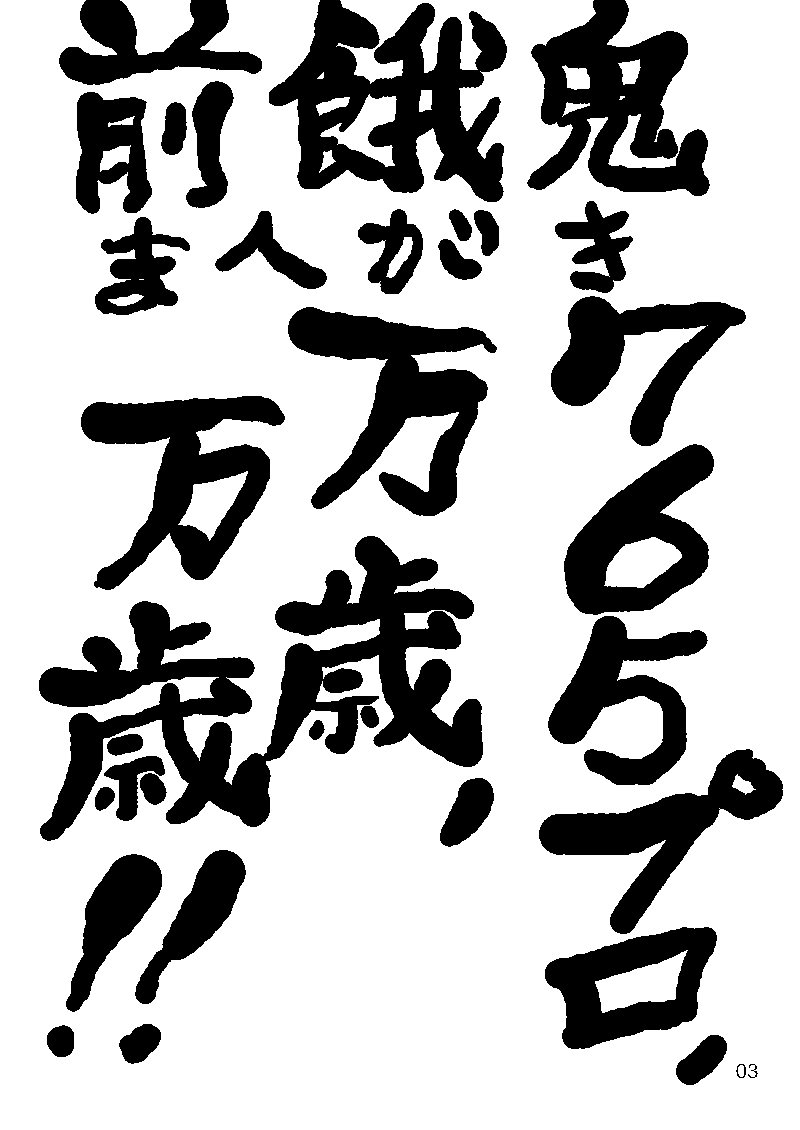 鬼き765プロ、
餓が万歳、
前ま人万歳!!
03